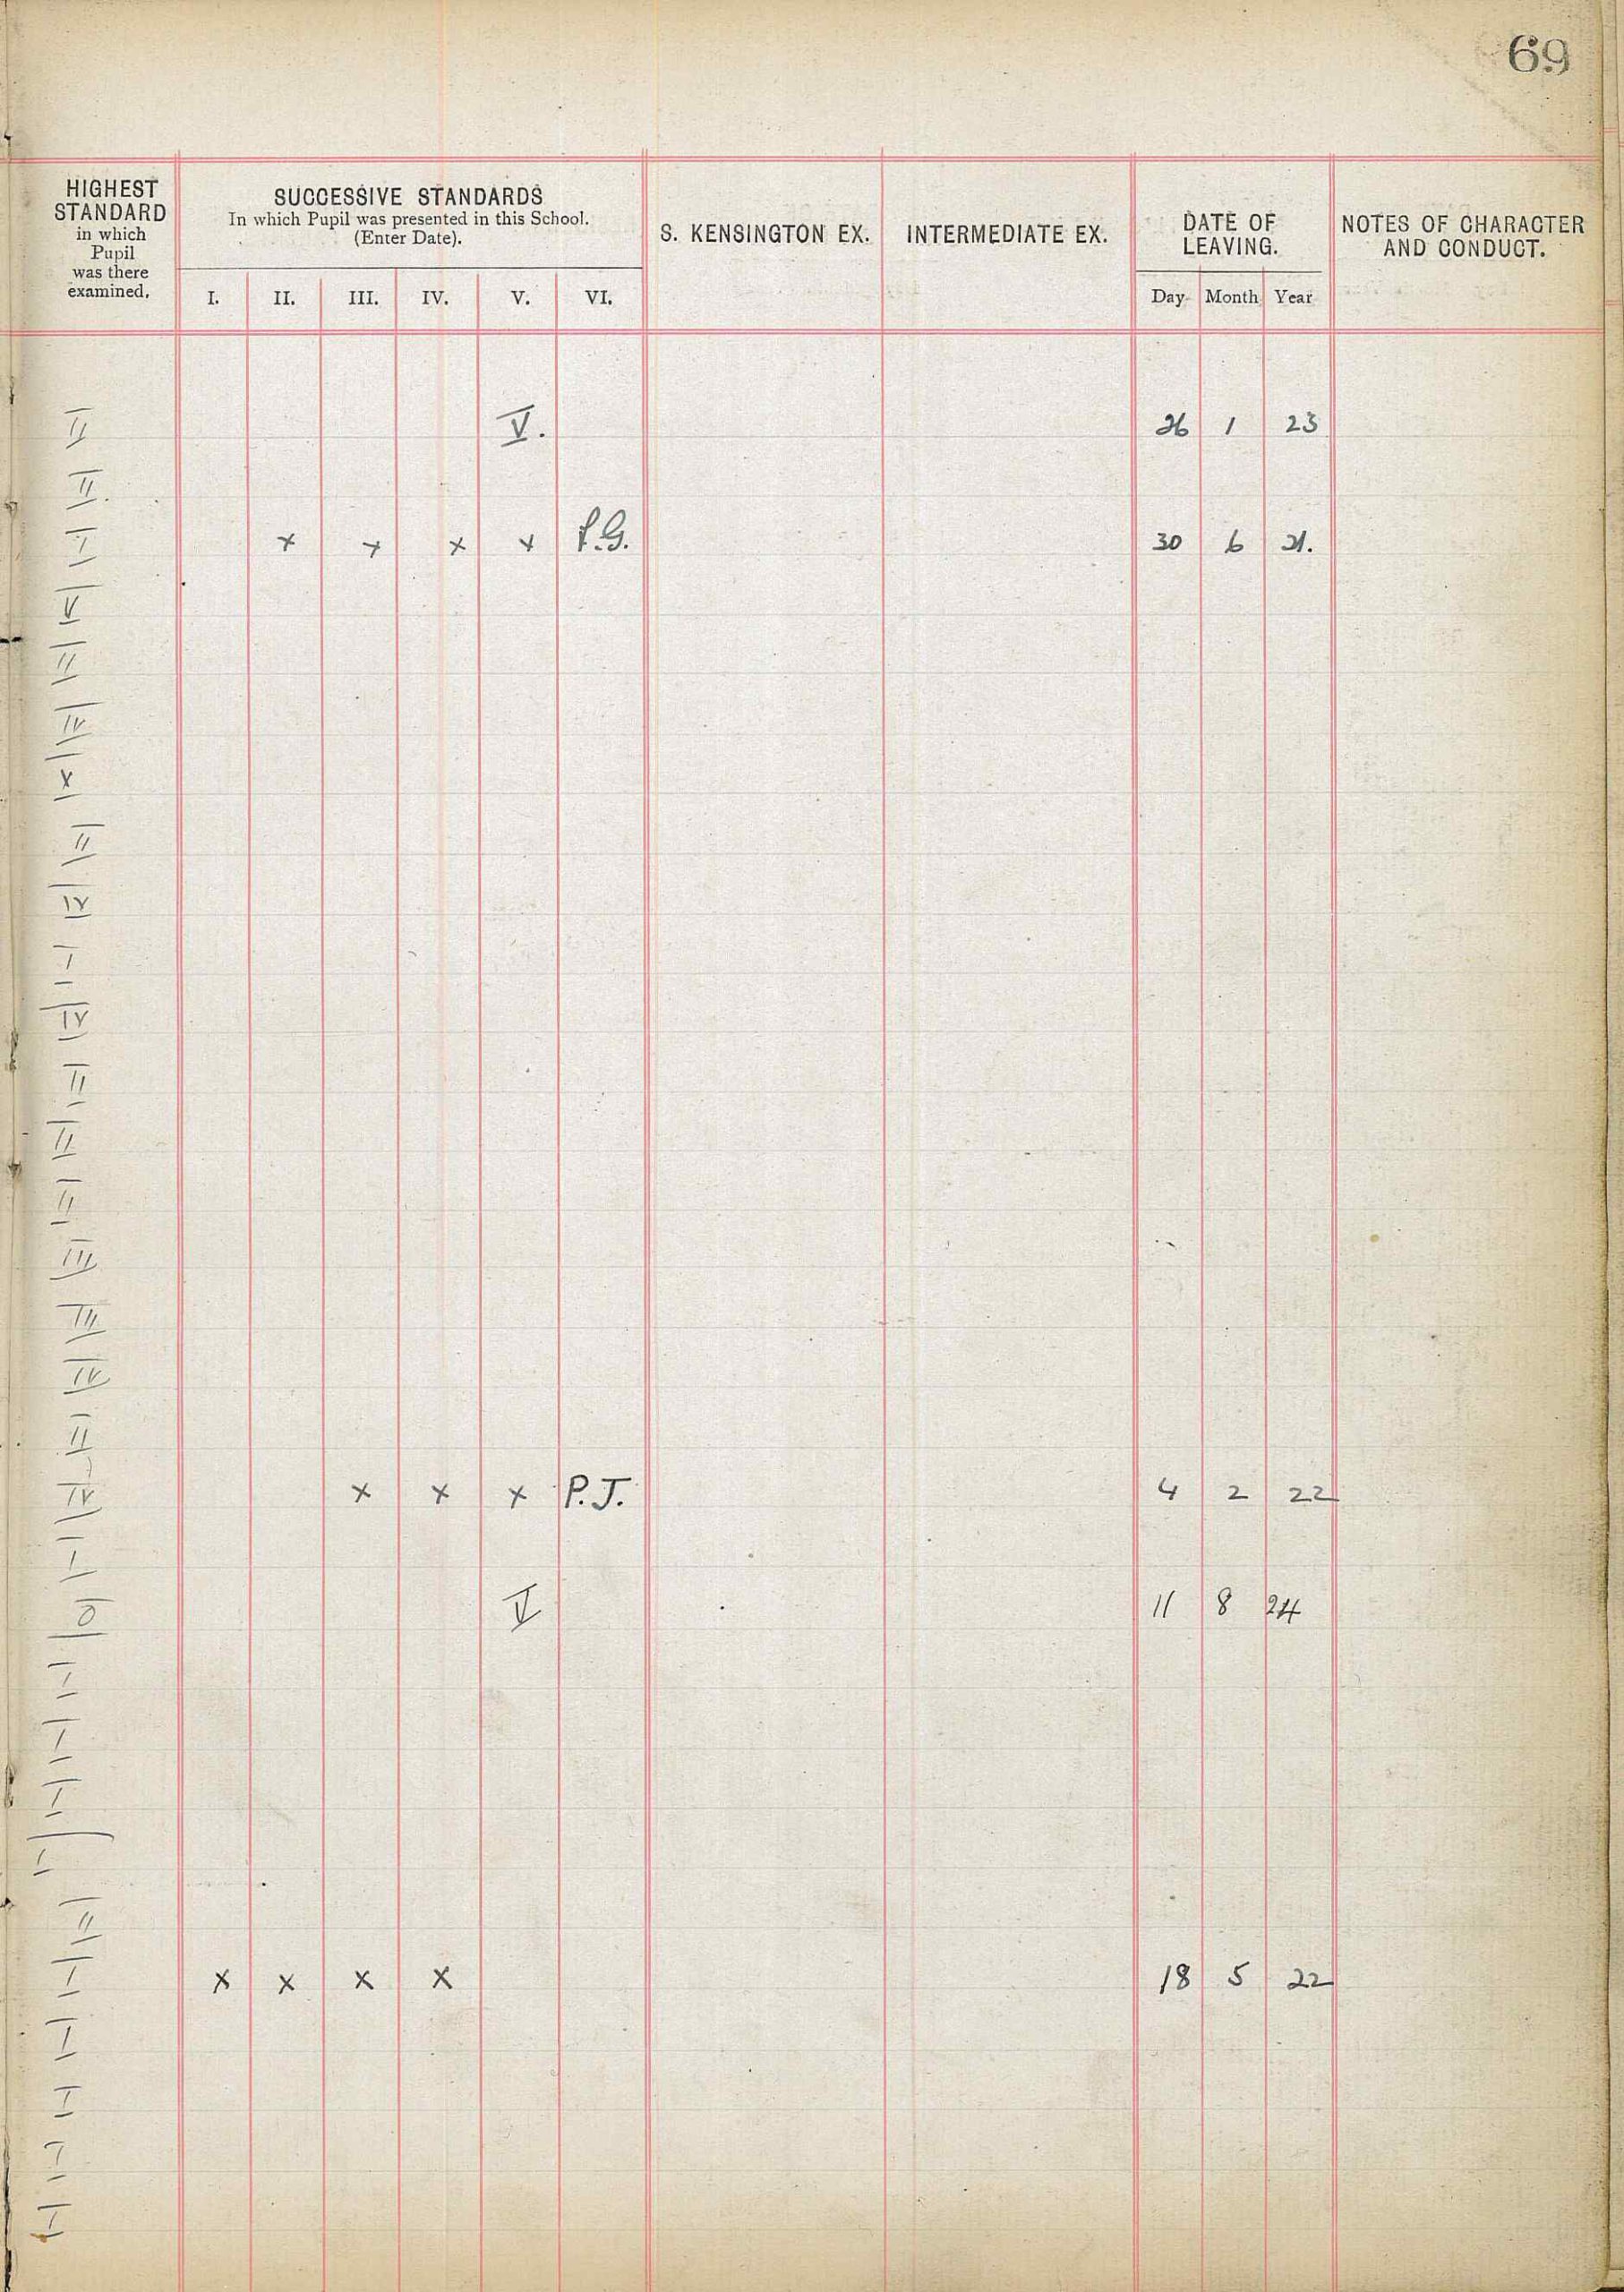 69
HIGHEST STANDARD in which Pupil was there examined.
SUCCESSIVE STANDARDS
In which Pupil was presented in this School.
(Enter Date).
I. II. III. IV. V. VI.
S. KENSINGTON EX.
INTERMEDIATE EX.
DATE OF LEAVING.
Day Month Year
NOTES OF CHARACTER AND CONDUCT.
II V. 26 1 23
II.
I x x x x P.G. 30 6 21.
V
II
IV
X
II
IV
I
IV
II
II
II
III
III
IV
II
IV x x x P.J. 4 2 22
I
O V 11 8 24
I
I
I
I
II
I x x x x 18 5 22
I
I
I
I